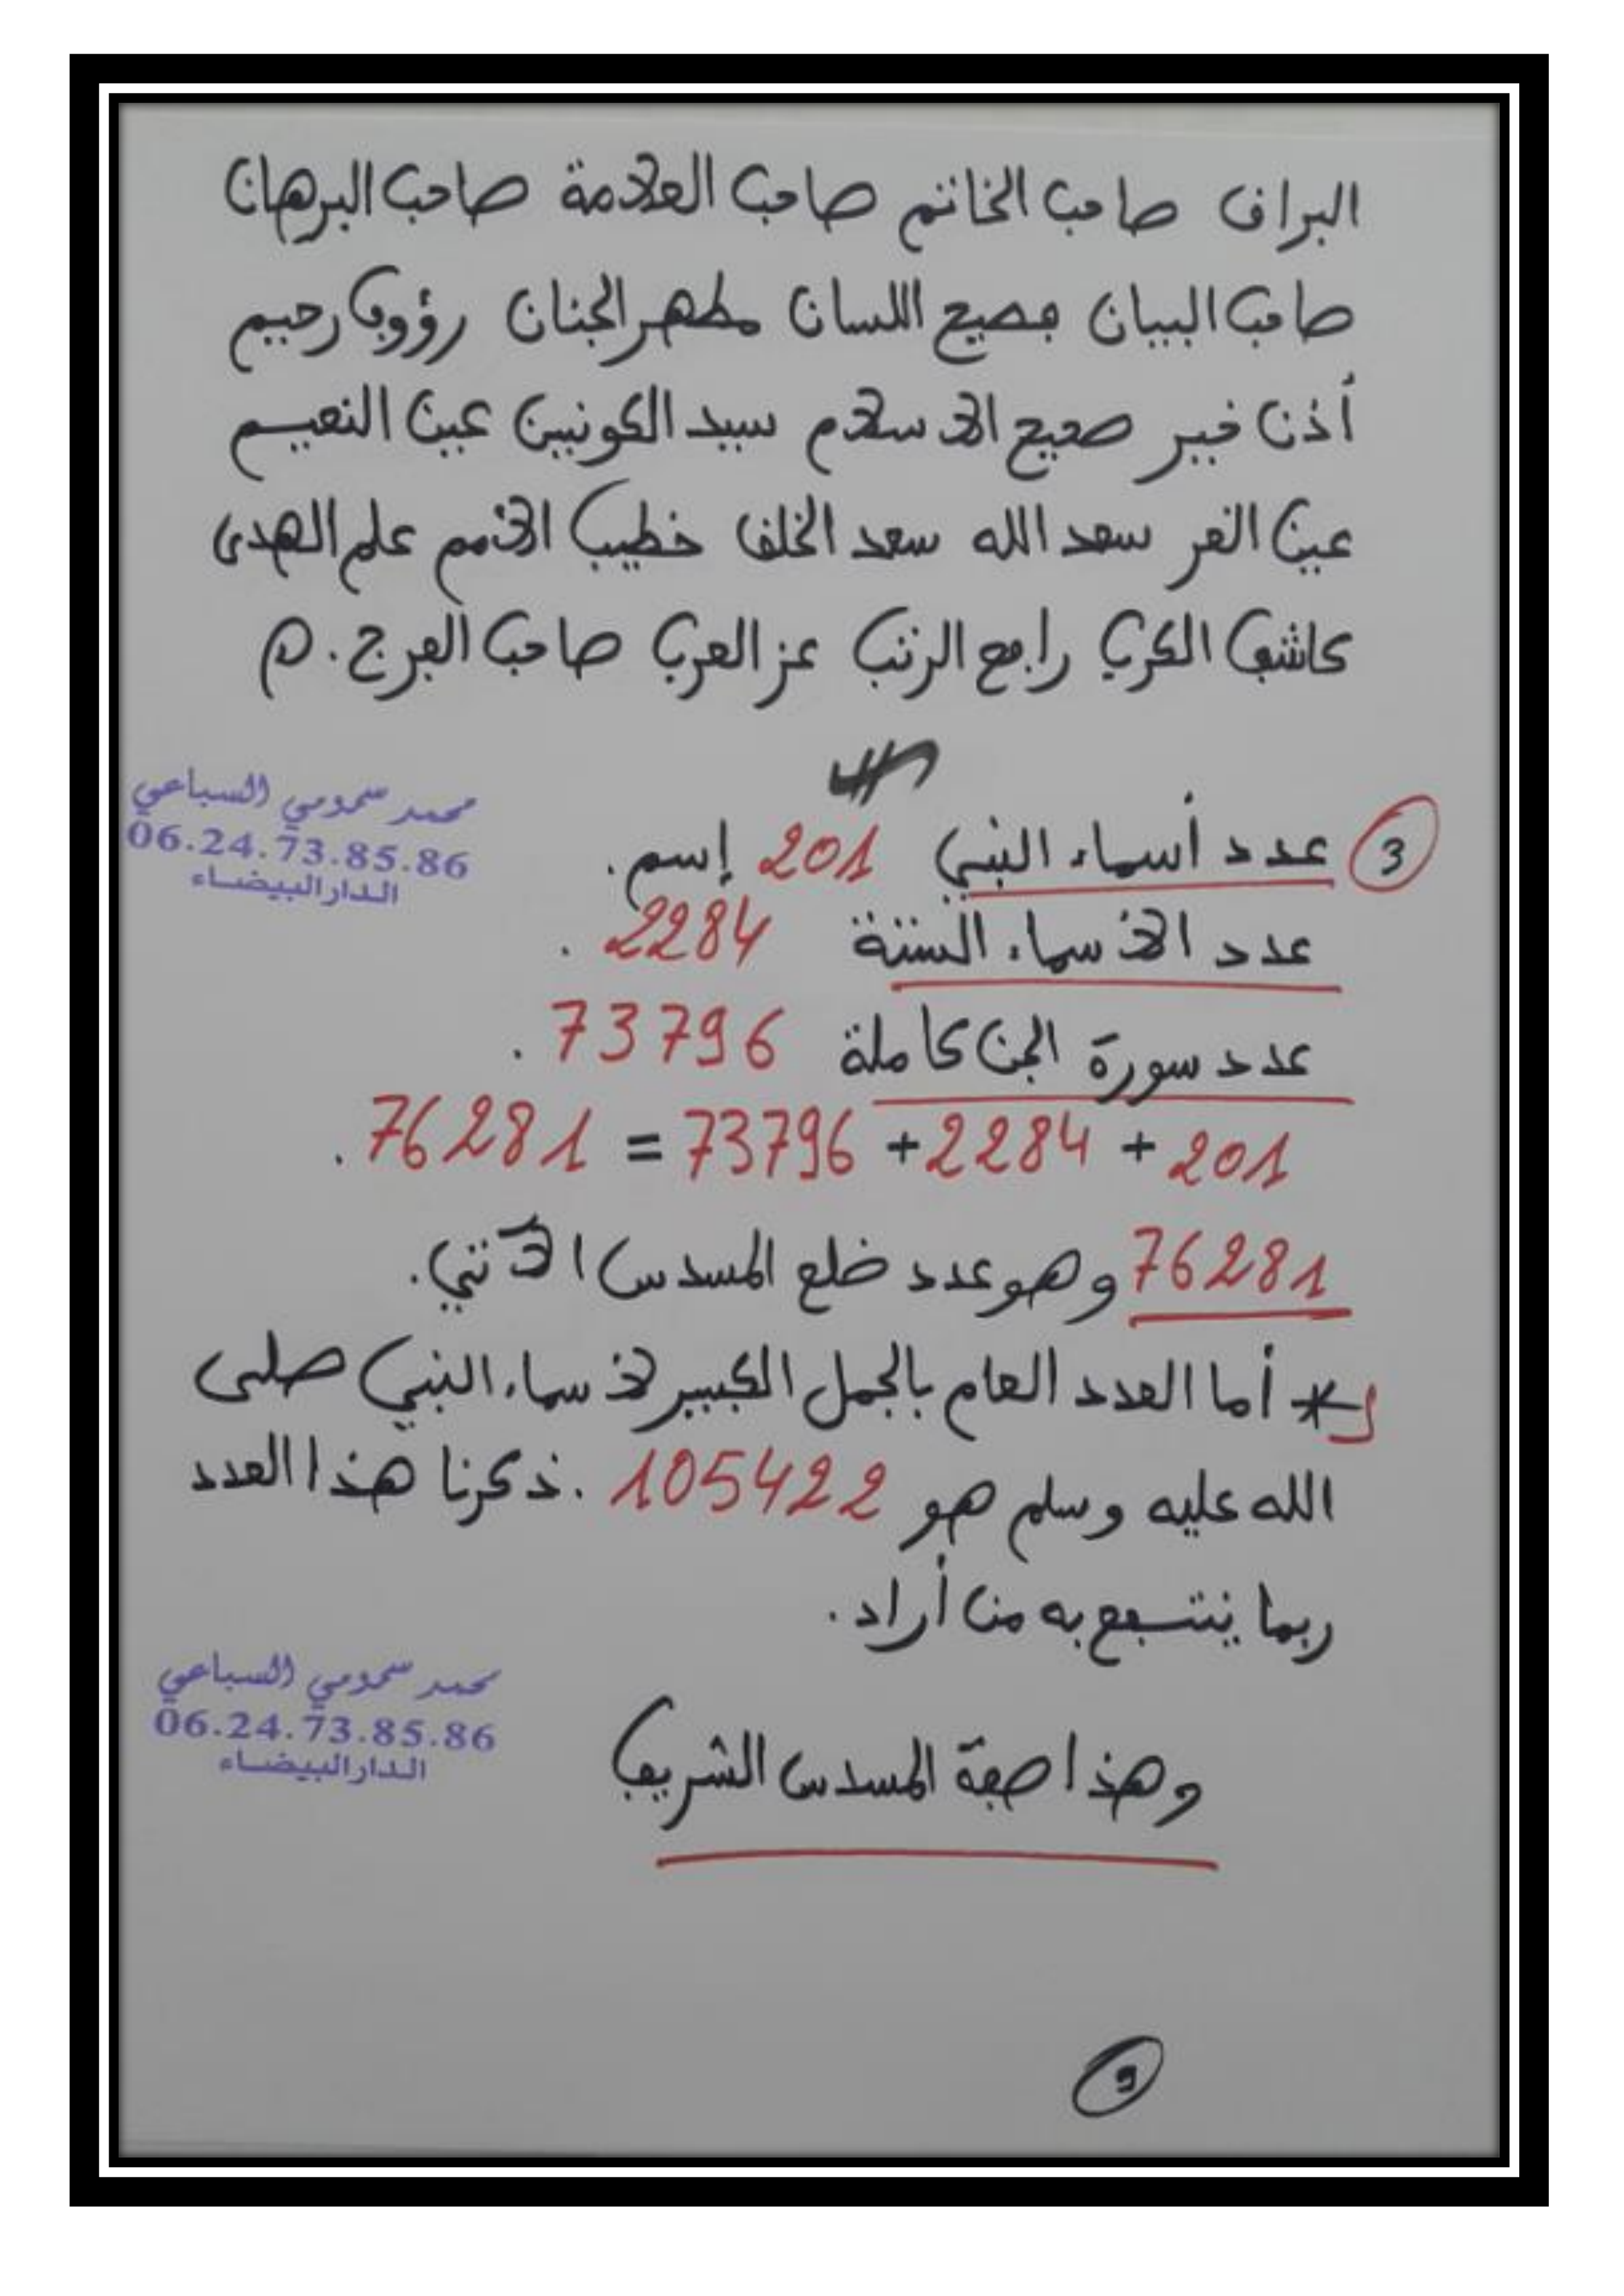 البراق صاحب الخاتم صاحب العلامة صاحب البرهان
صاحب البيان فصيح اللسان مطهر الجنان رؤوف رحيم
أذن خير صحيح الإسلام سيد الكونين عين النعيم
عين الغر سعد الله سعد الخلق خطيب الأمم علم الهدى
كاشف الكرب رافع الرتب عز العرب صاحب الفرج.
3 عدد أسماء النبي 201 إسم.
محمد سمومي السباعي
06.24.73.85.86
الدار البيضاء
عدد الأسماء الستة 2284.
عدد سورة الجن كاملة 73796.
201 + 2284 + 73796 = 76281.
76281 وهو عدد ضلع المسدس الآتي.
* أما العدد العام بالجمل الكبير لأسماء النبي صلى
الله عليه وسلم هو 105422. ذكرنا هذا العدد
ربما ينتفع به من أراد.
محمد سمومي السباعي
06.24.73.85.86
الدار البيضاء
وهذا صفة المسدس الشريف
9